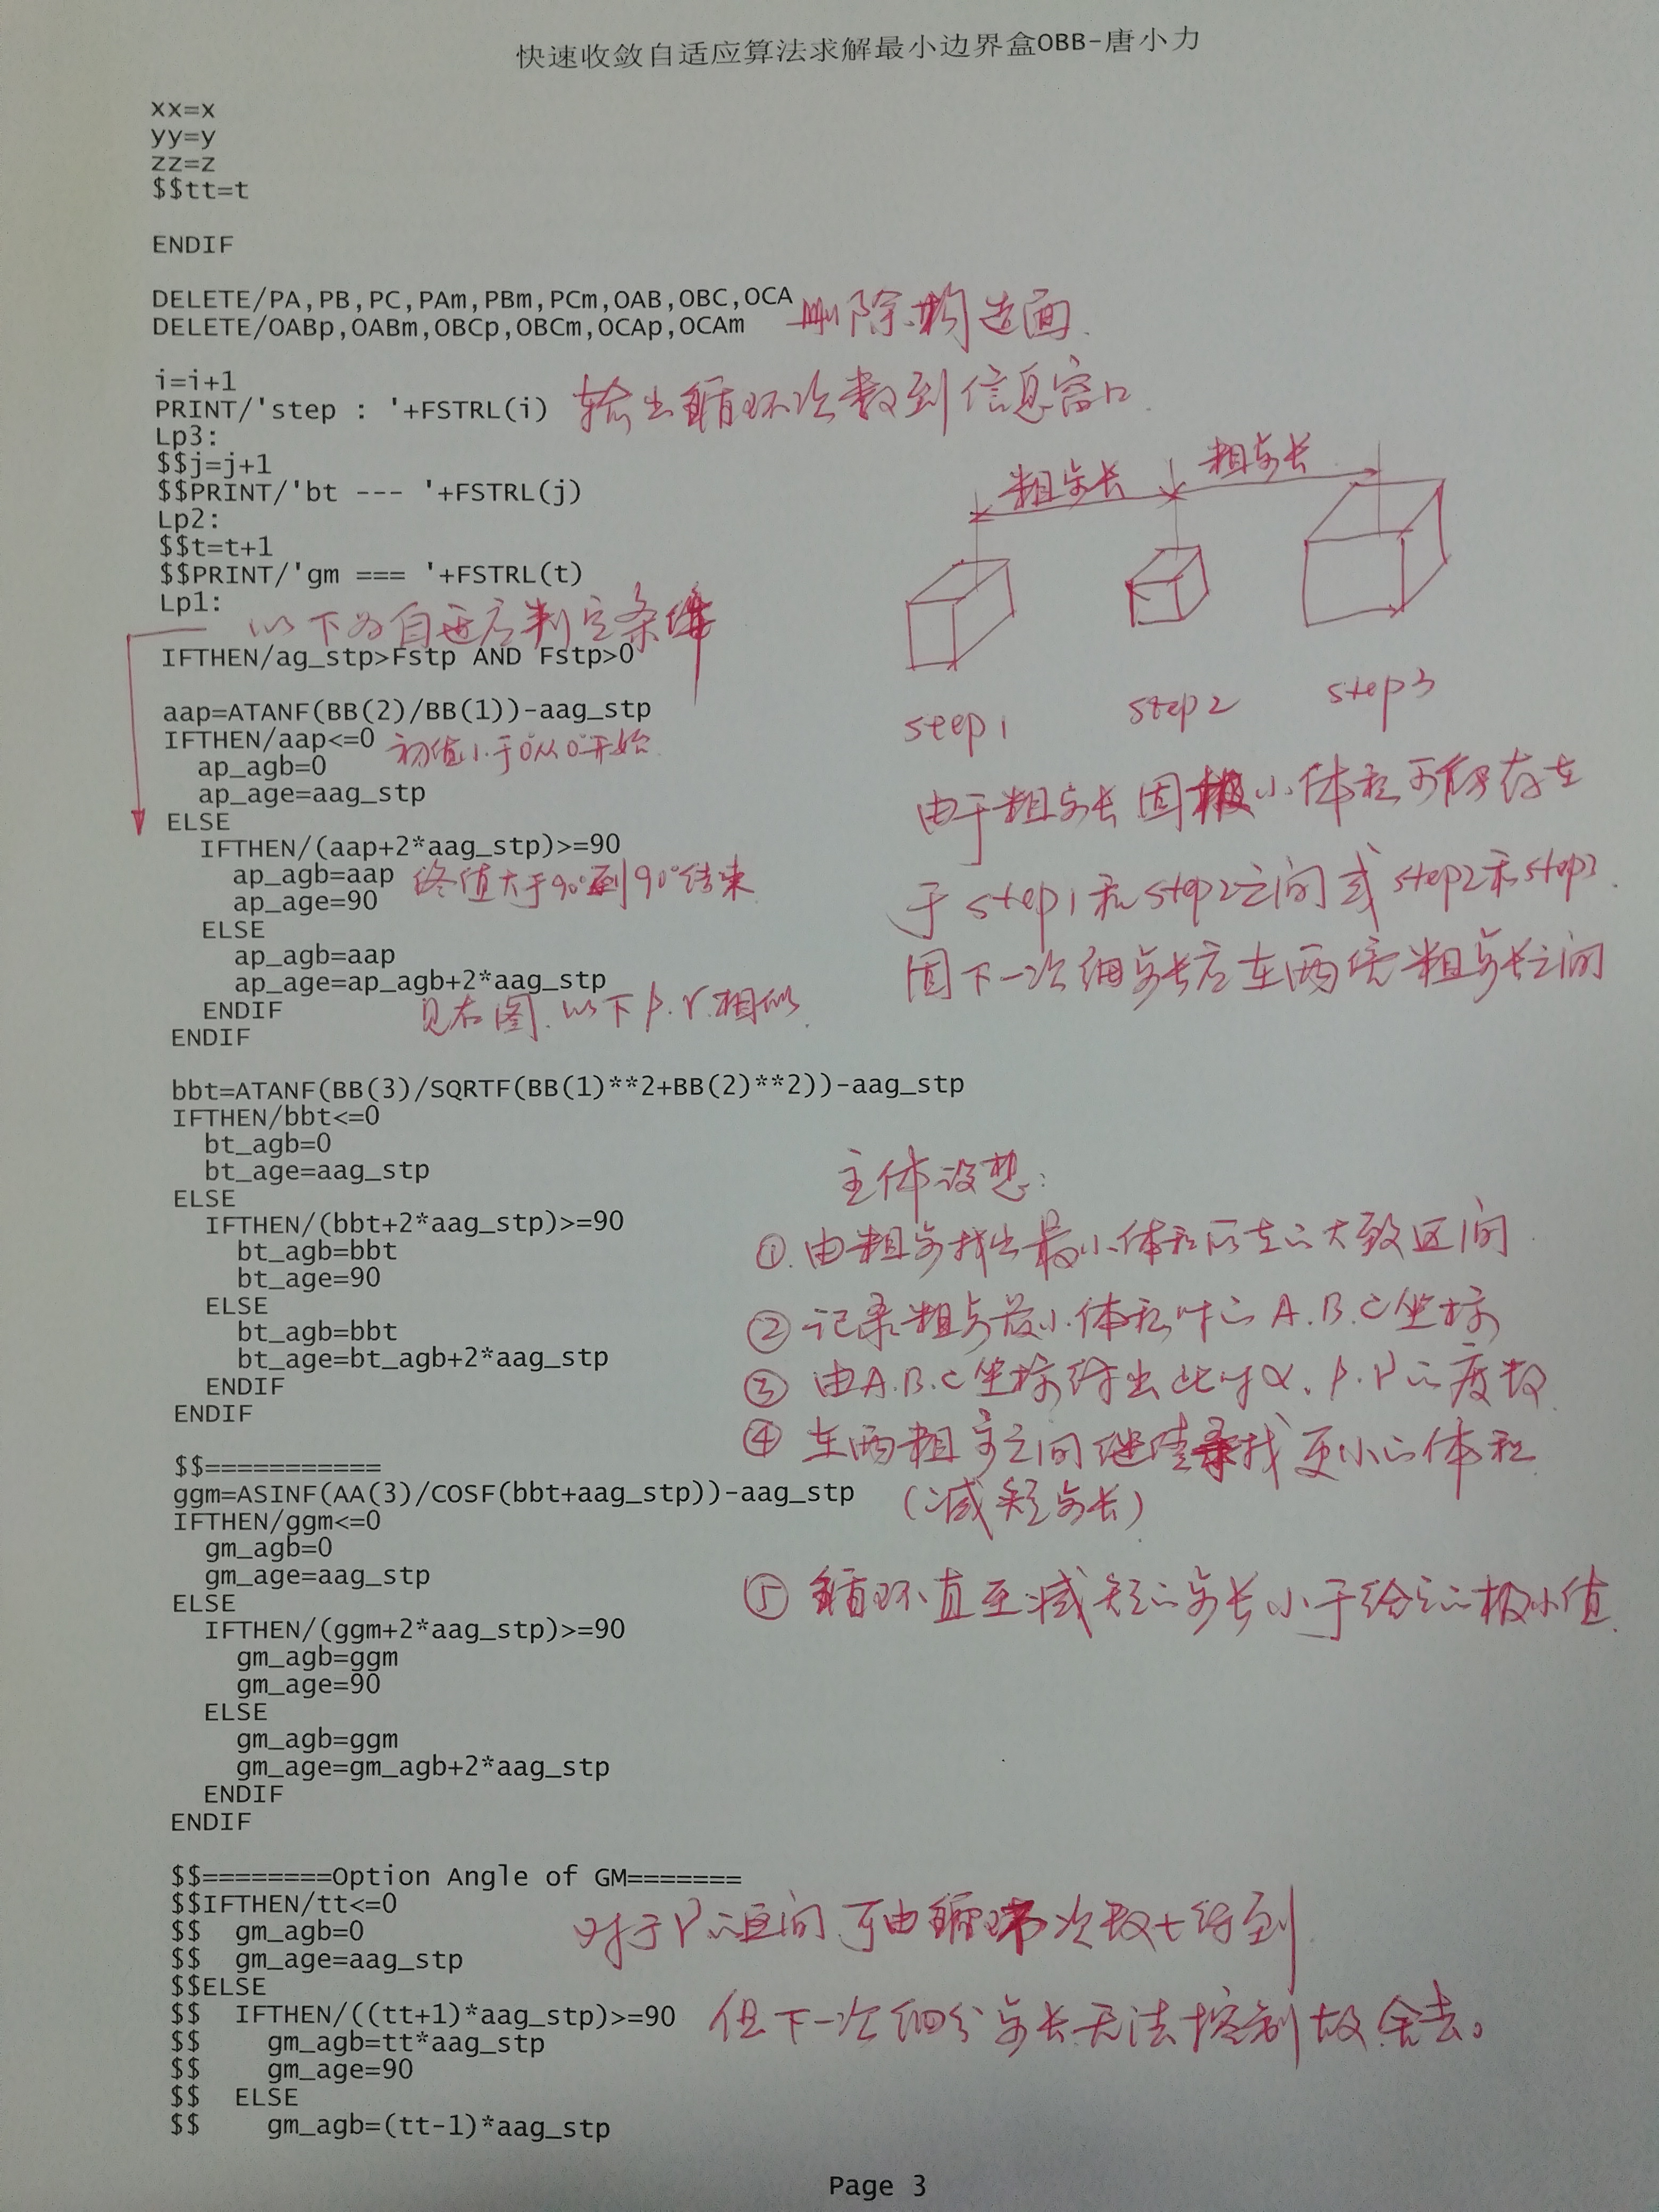 快速收敛自适应算法求解最小边界盒OBB-唐小力
xx=x
yy=y
zz=z
$$tt=t
ENDIF
DELETE/PA,PB,PC,PAm,PBm,PCm,OAB,OBC,OCA
DELETE/OABp,OABm,OBCp,OBCm,OCAp,OCAm 删除构造面.
i=i+1
PRINT/'step : '+FSTRL(i) 输出循环次数到信息窗口.
Lp3:
$$j=j+1
$$PRINT/'bt --- '+FSTRL(j)
Lp2:
$$t=t+1
$$PRINT/'gm === '+FSTRL(t)
Lp1:
以下为自适应判定条件
IFTHEN/ag_stp>Fstp AND Fstp>0
aap=ATANF(BB(2)/BB(1))-aag_stp
IFTHEN/aap<=0 初值小于0°从0°开始
ap_agb=0
ap_age=aag_stp
ELSE
IFTHEN/(aap+2*aag_stp)>=90
ap_agb=aap 终值大于90°到90°结束
ap_age=90
ELSE
ap_agb=aap
ap_age=ap_agb+2*aag_stp
ENDIF 见右图.以下β.γ相似.
ENDIF
粗步长 粗步长
step1 step2 step3
由于粗步长固极小体积可能存在
于step1和step2之间或step2和step3.
固下一次细步长应在两倍粗步长之间
bbt=ATANF(BB(3)/SQRTF(BB(1)**2+BB(2)**2))-aag_stp
IFTHEN/bbt<=0
bt_agb=0
bt_age=aag_stp
ELSE
IFTHEN/(bbt+2*aag_stp)>=90
bt_agb=bbt
bt_age=90
ELSE
bt_agb=bbt
bt_age=bt_agb+2*aag_stp
ENDIF
ENDIF
$$===========
ggm=ASINF(AA(3)/COSF(bbt+aag_stp))-aag_stp
IFTHEN/ggm<=0
gm_agb=0
gm_age=aag_stp
ELSE
IFTHEN/(ggm+2*aag_stp)>=90
gm_agb=ggm
gm_age=90
ELSE
gm_agb=ggm
gm_age=gm_agb+2*aag_stp
ENDIF
ENDIF
主体设想:
①.由粗步找出最小体积所在的大致区间
② 记录粗步最小体积时的A.B.C坐标
③ 由A.B.C坐标得出此时α.β.γ的度数.
④ 在两粗步之间继续寻找更小的体积
(减短步长)
⑤ 循环直至减短的步长小于给定的极小值.
$$========Option Angle of GM=======
$$IFTHEN/tt<=0
$$ gm_agb=0 对于γ的区间可由循环次数t得到
$$ gm_age=aag_stp
$$ELSE
$$ IFTHEN/((tt+1)*aag_stp)>=90 但下一次细分步长无法控制故舍去。
$$ gm_agb=tt*aag_stp
$$ gm_age=90
$$ ELSE
$$ gm_agb=(tt-1)*aag_stp
Page 3